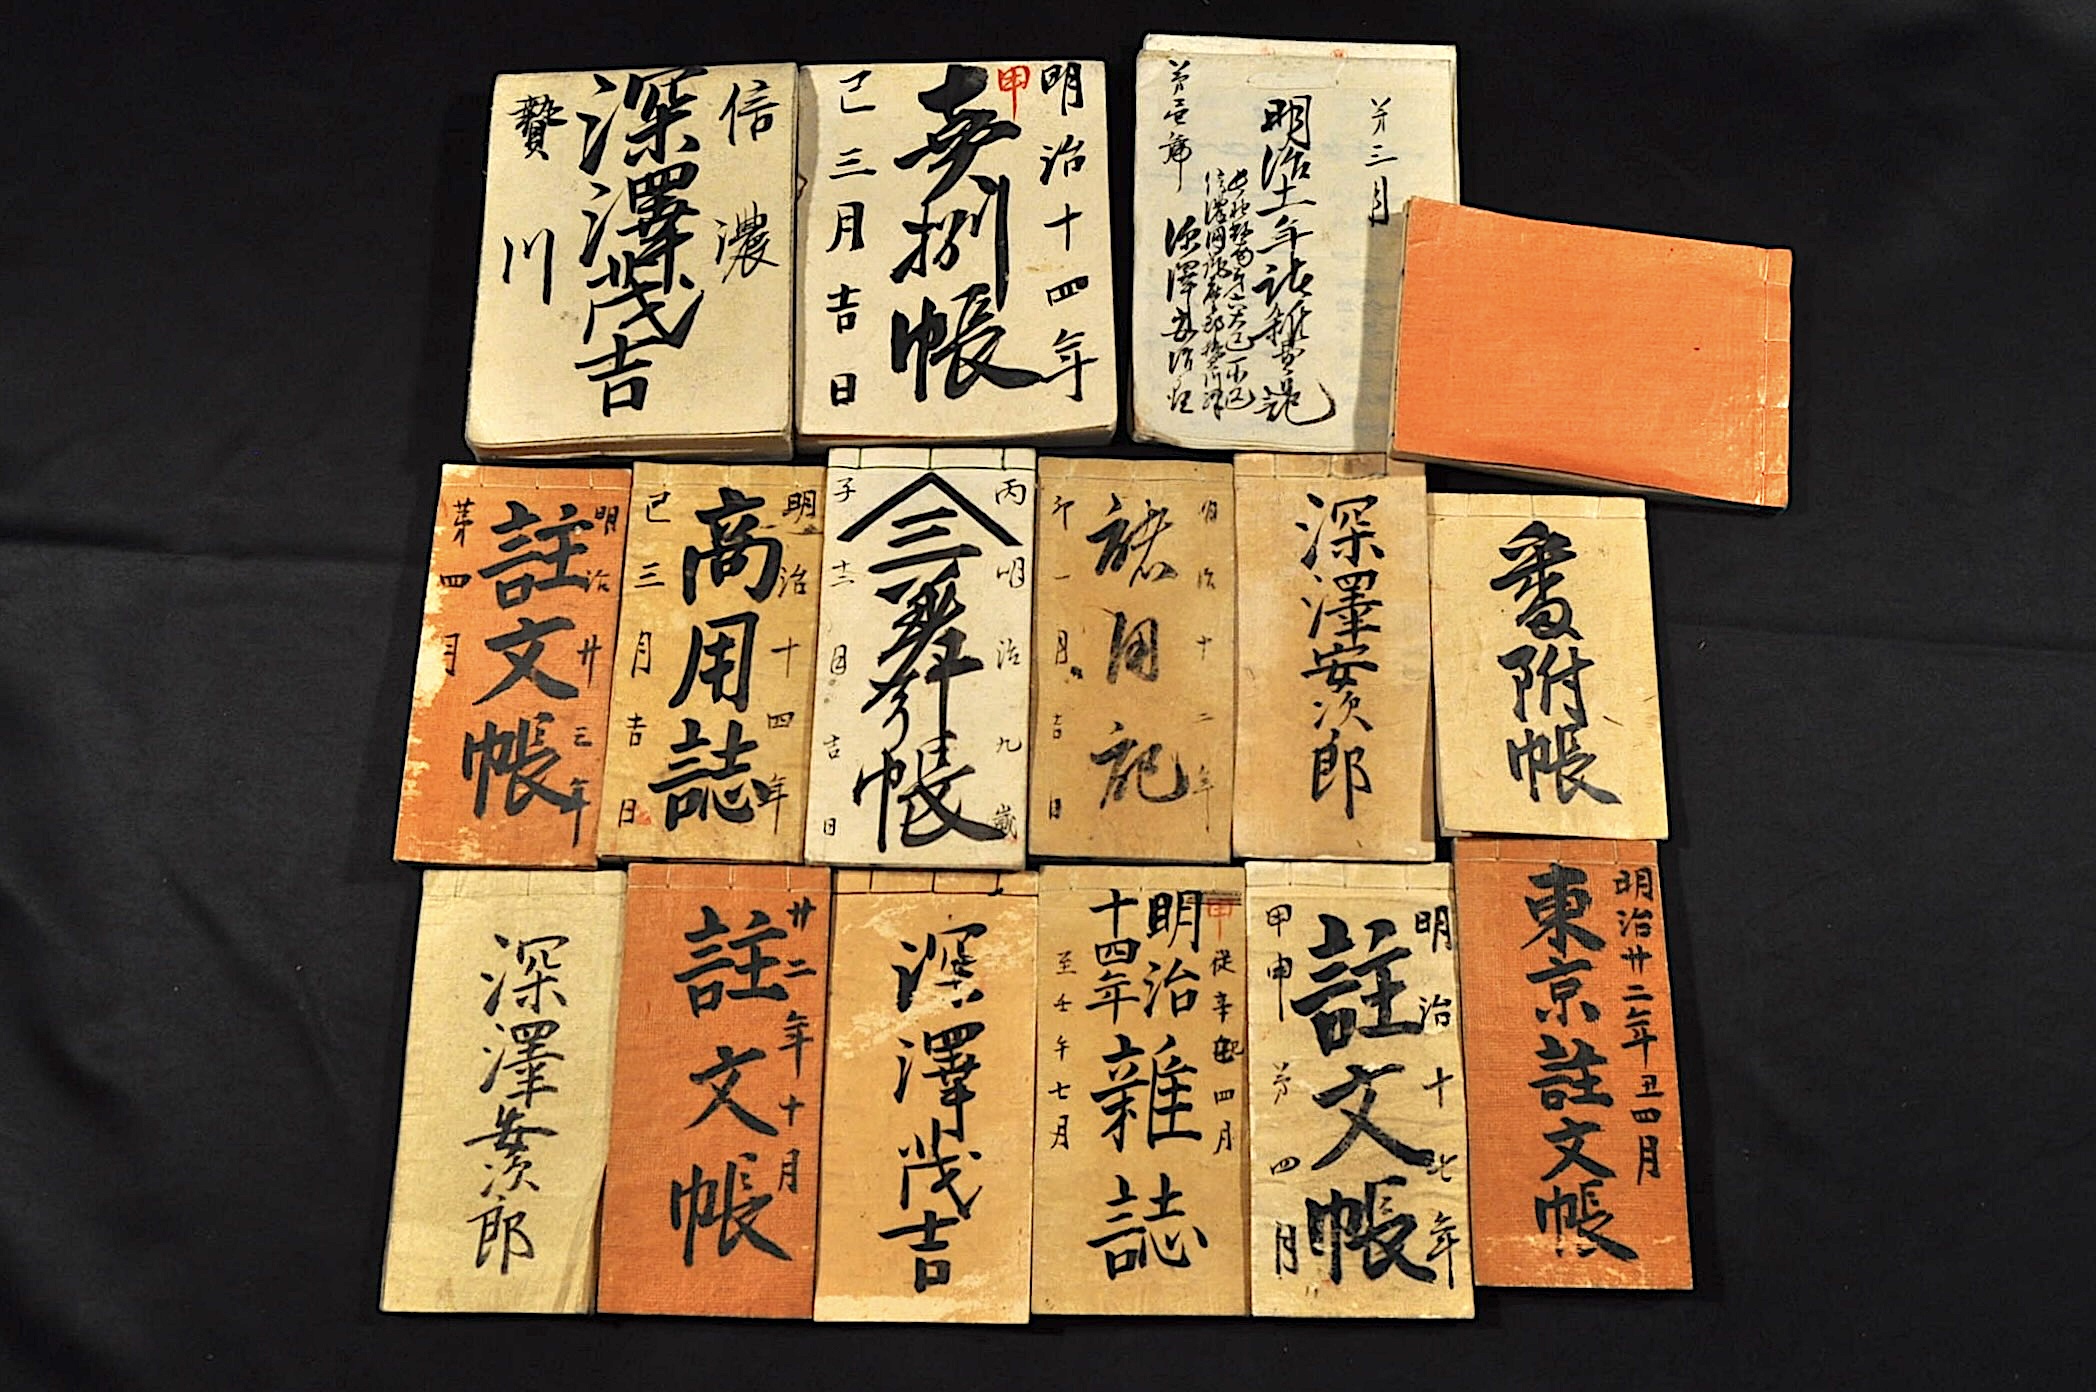 信濃
深澤茂吉
贄川
明治十四年
甲
売捌帳
巳三月吉日
第三月
明治十一年諸雑費記
第壱号
明治廿三年
註文帳
第四月
明治十四年
商用誌
巳三月吉日
丙 明治九歳
三
帳
子十二月吉日
明治十二年
諸用記
卯一月吉日
深澤安次郎
番附帳
深澤安次郎
廿二年十月
註文帳
深澤茂吉
甲
明治十四年
雑誌
四月
至壬午七月
明治十七年
註文帳
甲申 第四月
明治廿二年丑四月
東京註文帳